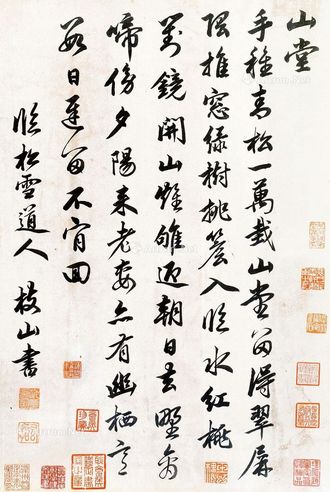 山堂
手種青松一萬栽山堂留得翠屏
隈推窗綠樹排簷入臨水紅桃
對鏡開山雉雊迎朝日去野禽
啼傍夕陽來老妻亦有幽栖意
數日遲留不肯回
臨松雪道人 枝山書